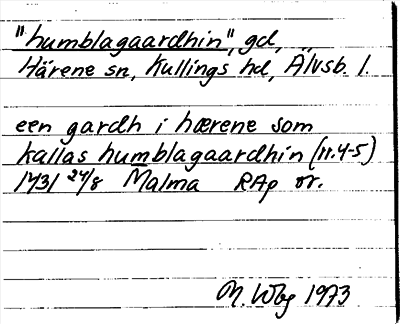 "humblagaardhin", gd,
Härene sn, Kullings hd, Älvsb. l.
een gardh i hærene som
kallas humblagaardhin (rr. 4-5)
1431 24/8 Malma RAp or.
M. Wbg 1973